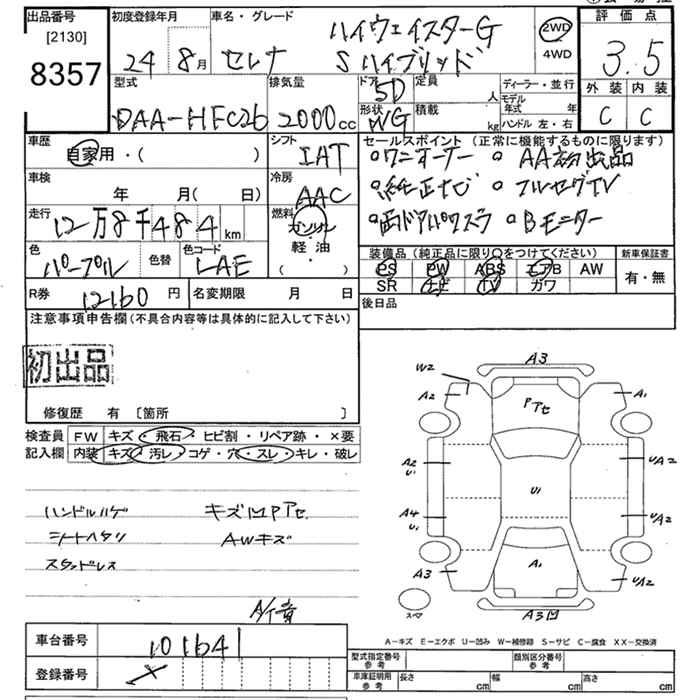 出品番号
[2130]
8357
初度登録年月
24 8月
車名・グレード
ハイウェイスターG
セレナ Sハイブリッド
2WD
4WD
評価点
3.5
外装 内装
C C
型式
DAA-HFC26
排気量
2000cc
ドア
5D
形状
WG
定員
人
積載
kg
ディーラー・並行
モデル年式 年
ハンドル 左・右
車歴
自家用・( )
車検
年 月( 日)
走行
12万8千484km
色
パープル
色替
色コード
LAE
シフト
IAT
冷房
AAC
燃料
ガソリン
軽・油
・( )
セールスポイント(正常に機能するものに限ります)
○ワンオーナー ○AA初出品
○純正ナビ ○フルセグTV
○両ドアパワスラ ○Bモニター
装備品(純正品に限り○をつけてください)
PS PW ABS エアB AW
SR ナビ TV ガワ
新車保証書
有・無
R券 12160円
名変期限 月 日
後日品
注意事項申告欄(不具合内容等は具体的に記入して下さい)
初出品
修復歴 有 [箇所 ]
検査員記入欄
FW キズ・飛石・ヒビ割・リペア跡・×要
内装 キズ・汚レ・コゲ・穴・スレ・キレ・破レ
ハンドルハゲ キズ凹Pアセ
シートヘタリ AWキズ
スタッドレス
A3
W2
A2 A1
Pアセ
A2 U1 UA2
U1
A4 U1 UA2
A3 A1 UA2
スペア
A3凹
A-キズ E-エクボ U-凹み W-補修跡 S-サビ C-腐食 XX-交換済
車台番号 101641
登録番号
型式指定番号 参考
類別区分番号 参考
車庫証明用 参考
長さ cm 幅 cm 高さ cm